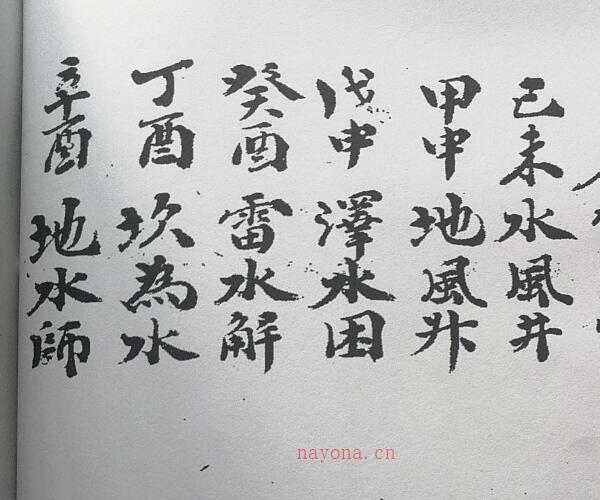 己未水風井
甲申地風升
戊申澤水困
癸酉雷水解
丁酉坎為水
辛酉地水師
nayona.cn